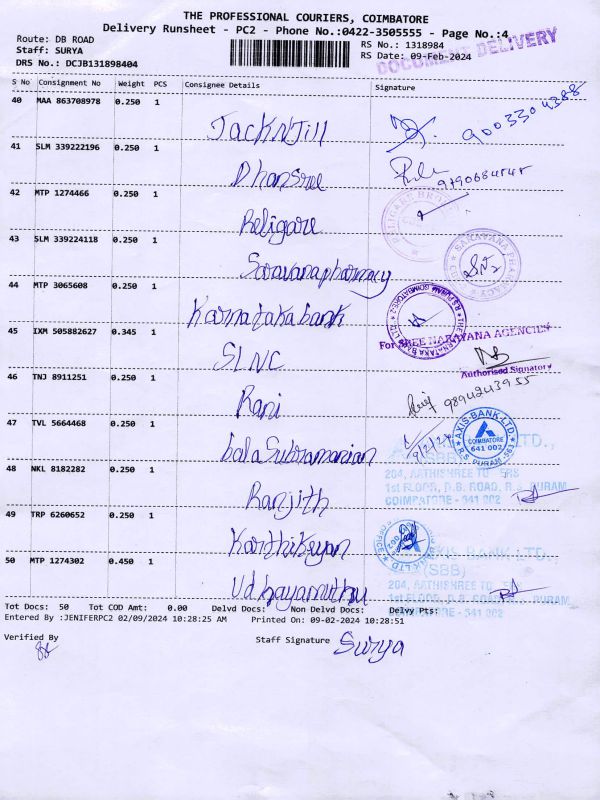 THE PROFESSIONAL COURIERS, COIMBATORE
Delivery Runsheet - PC2 - Phone No.:0422-3505555 - Page No.:4
Route: DB ROAD
Staff: SURYA
DRS No.: DCJB131898404
RS No.: 1318984
RS Date: 09-Feb-2024
DOCUMENT DELIVERY
S No Consignment No Weight PCS Consignee Details Signature
40 MAA 863708978 0.250 1
Jack N Jill 9003304388
41 SLM 339222196 0.250 1
Dhansree
42 MTP 1274466 0.250 1
Religare
43 SLM 339224118 0.250 1
SARAVANA PHARMACY
Saravanapharmacy
44 MTP 3065608 0.250 1
Karnataka bank
45 IXM 505882627 0.345 1
For SREE NARAYANA AGENCIES
SLNC
Authorised Signatory
46 TNJ 8911251 0.250 1
Rani 9894243955
47 TVL 5664468 0.250 1
AXIS-BANK-LTD.
COIMBATORE
641 002
R.S. PURAM
balaSubramanian 9/2/24
48 NKL 8182282 0.250 1
204, AATHISHREE
1st FLOOR, D.B. ROAD, R.S. PURAM
COIMBATORE - 641 002
Ranjith
49 TRP 6260652 0.250 1
Karthikeyan
AXIS BANK LTD.
(SBB)
50 MTP 1274302 0.450 1
204, AATHISHREE
Udhayamuthu
Tot Docs: 50 Tot COD Amt: 0.00 Delvd Docs: Non Delvd Docs: Delvy Pts:
Entered By :JENIFERPC2 02/09/2024 10:28:25 AM Printed On: 09-02-2024 10:28:51
Verified By Staff Signature Surya